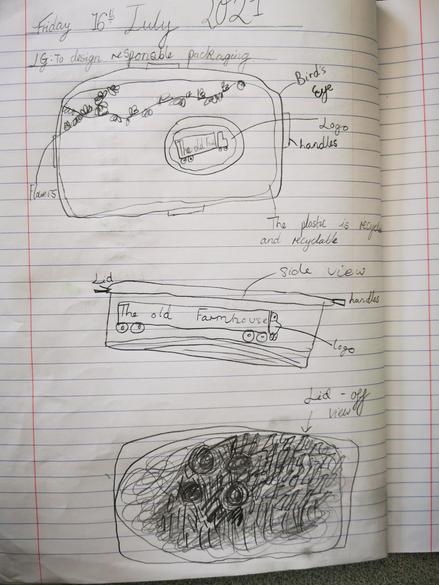 Friday 16th July 2021
LG: To design responable packaging
Bird's
Eye
Logo
handles
The old
The plastic is recycle
and recyclable
side view
Lid
handles
The old Farmhouse
logo
Lid - off
view